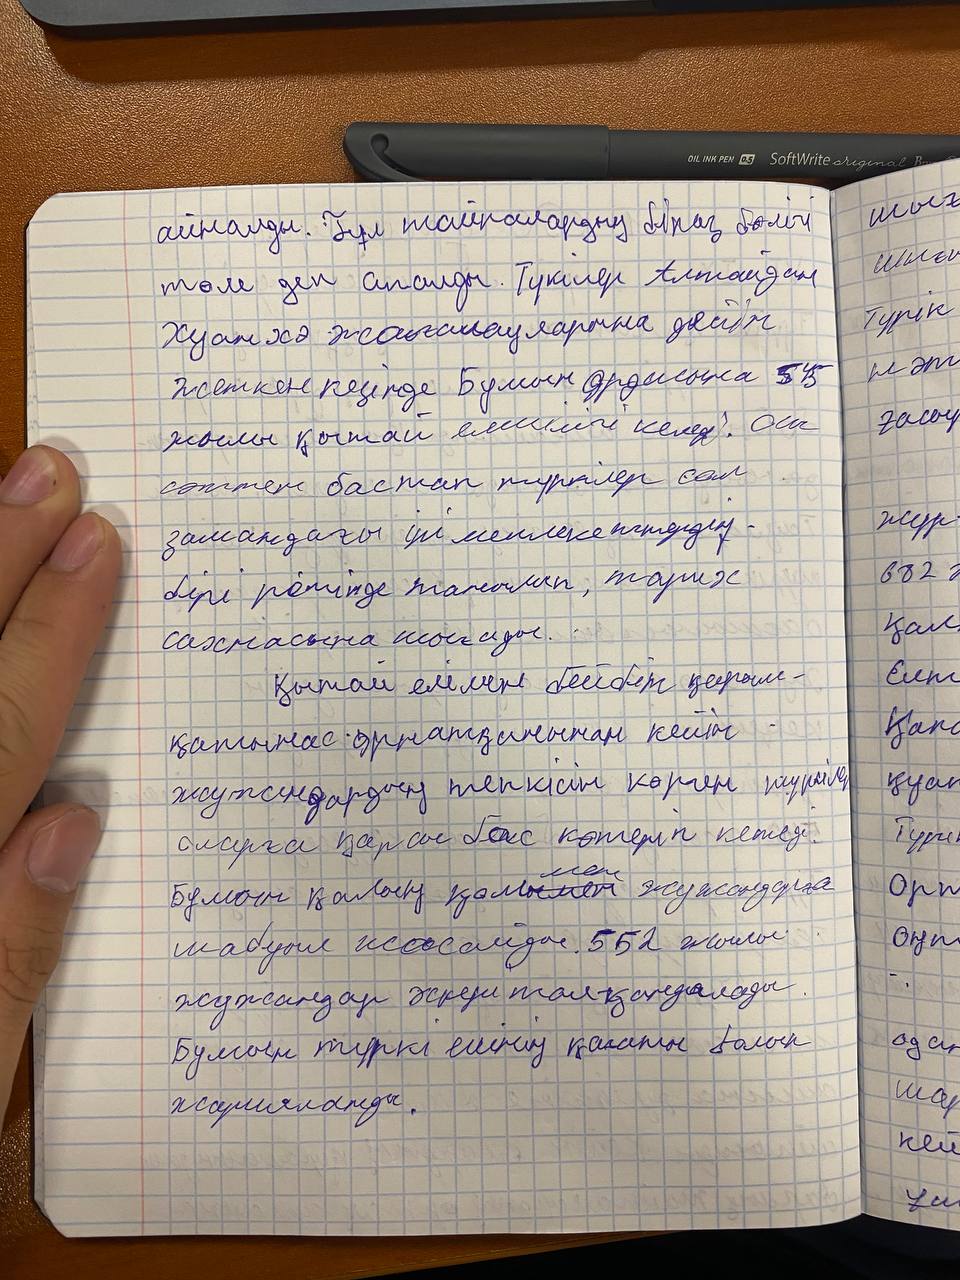 OIL INK PEN 0.5 SoftWrite original
айналды. Бұл тайпалардың біраз бөлігі
төле деп аталды. Түкілер Алтайдан
Хуанхэ жағалауларына дейін
жеткен кезінде Бумын ордасына 545
жылы қытай елшілігі келеді. Осы
сәттен бастап түркілер сол
замандағы ірі мемлекеттердің
бірі ретінде танылып, тарих
сахнасына шығады.
Қытай елімен бейбіт қарым-
қатынас орнатқанынан кейін
жужандардың тепкісін көрген түркілер
оларға қарсы бас көтеріп кетеді.
Бумын қалың қолмен жужандарға
шабуыл жасайды. 552 жылы
жужандар әскери талқандалады.
Бумын түркі елінің қағаны болып
жарияланды.
Түрік
632
Орт
одан
шар
кей